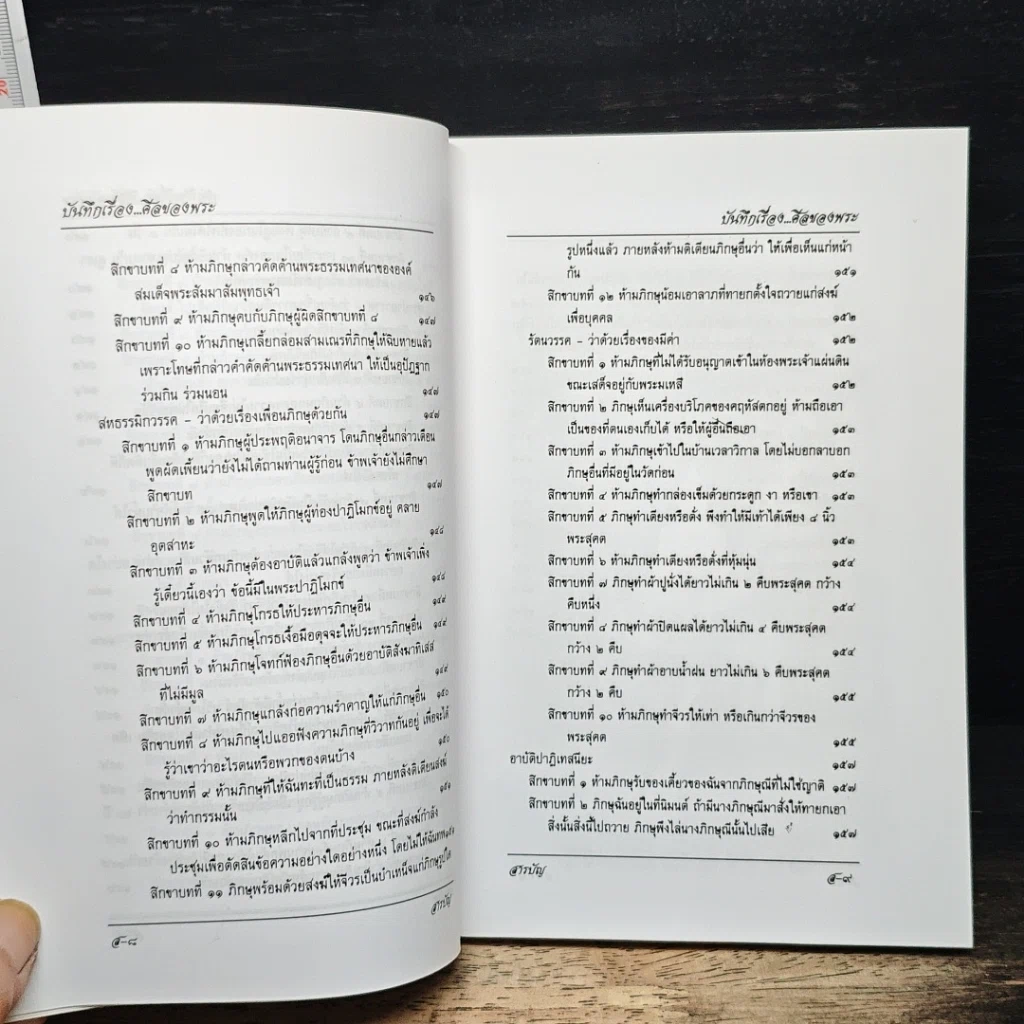 บันทึกเรื่อง...ศีลของพระ
สิกขาบทที่ ๘ ห้ามภิกษุกล่าวคัดค้านพระธรรมเทศนาขององค์
สมเด็จพระสัมมาสัมพุทธเจ้า ๑๔๖
สิกขาบทที่ ๙ ห้ามภิกษุคบกับภิกษุผู้ผิดสิกขาบทที่ ๘ ๑๔๗
สิกขาบทที่ ๑๐ ห้ามภิกษุเกลี้ยกล่อมสามเณรที่ภิกษุให้ฉิบหายแล้ว
เพราะโทษที่กล่าวคำคัดค้านพระธรรมเทศนา ให้เป็นอุปัฏฐาก
ร่วมกิน ร่วมนอน ๑๔๗
สหธรรมิกวรรค - ว่าด้วยเรื่องเพื่อนภิกษุด้วยกัน ๑๔๗
สิกขาบทที่ ๑ ห้ามภิกษุผู้ประพฤติอนาจาร โดนภิกษุอื่นกล่าวเตือน
พูดผัดเพี้ยนว่ายังไม่ได้ถามท่านผู้รู้ก่อน ข้าพเจ้ายังไม่ศึกษา
สิกขาบท ๑๔๗
สิกขาบทที่ ๒ ห้ามภิกษุพูดให้ภิกษุผู้ท่องปาฏิโมกข์อยู่ คลาย
อุตสาหะ ๑๔๘
สิกขาบทที่ ๓ ห้ามภิกษุต้องอาบัติแล้วแกล้งพูดว่า ข้าพเจ้าเพิ่ง
รู้เดี๋ยวนี้เองว่า ข้อนี้มีในพระปาฏิโมกข์ ๑๔๘
สิกขาบทที่ ๔ ห้ามภิกษุโกรธให้ประหารภิกษุอื่น ๑๔๙
สิกขาบทที่ ๕ ห้ามภิกษุโกรธเงื้อมือดุจจะให้ประหารภิกษุอื่น ๑๔๙
สิกขาบทที่ ๖ ห้ามภิกษุโจทก์ฟ้องภิกษุอื่นด้วยอาบัติสังฆาทิเสส
ที่ไม่มีมูล ๑๔๙
สิกขาบทที่ ๗ ห้ามภิกษุแกล้งก่อความรำคาญให้แก่ภิกษุอื่น ๑๕๐
สิกขาบทที่ ๘ ห้ามภิกษุไปแอบฟังความภิกษุที่วิวาทกันอยู่ เพื่อจะได้
รู้ว่าเขาว่าอะไรตนหรือพวกของตนบ้าง ๑๕๐
สิกขาบทที่ ๙ ห้ามภิกษุที่ให้ฉันทะที่เป็นธรรม ภายหลังติเตียนสงฆ์
ว่าทำกรรมนั้น ๑๕๑
สิกขาบทที่ ๑๐ ห้ามภิกษุหลีกไปจากที่ประชุม ขณะที่สงฆ์กำลัง
ประชุมเพื่อตัดสินข้อความอย่างใดอย่างหนึ่ง โดยไม่ให้ฉันทะ
สิกขาบทที่ ๑๑ ภิกษุพร้อมด้วยสงฆ์ให้จีวรเป็นบำเหน็จแก่ภิกษุรูปใด
สารบัญ
ส-๘
บันทึกเรื่อง...ศีลของพระ
รูปหนึ่งแล้ว ภายหลังห้ามติเตียนภิกษุอื่นว่า ให้เพื่อเห็นแก่หน้า
กัน ๑๕๑
สิกขาบทที่ ๑๒ ห้ามภิกษุน้อมเอาลาภที่ทายกตั้งใจถวายแก่สงฆ์
เพื่อบุคคล ๑๕๒
รัตนวรรค - ว่าด้วยเรื่องของมีค่า ๑๕๒
สิกขาบทที่ ๑ ห้ามภิกษุที่ไม่ได้รับอนุญาตเข้าในห้องพระเจ้าแผ่นดิน
ขณะเสด็จอยู่กับพระมเหสี ๑๕๒
สิกขาบทที่ ๒ ภิกษุเห็นเครื่องบริโภคของคฤหัสตกอยู่ ห้ามถือเอา
เป็นของที่ตนเองเก็บได้ หรือให้ผู้อื่นถือเอา ๑๕๓
สิกขาบทที่ ๓ ห้ามภิกษุเข้าไปในบ้านเวลาวิกาล โดยไม่บอกลาบอก
ภิกษุอื่นที่มีอยู่ในวัดก่อน ๑๕๓
สิกขาบทที่ ๔ ห้ามภิกษุทำกล่องเข็มด้วยกระดูก งา หรือเขา ๑๕๓
สิกขาบทที่ ๕ ภิกษุทำเตียงหรือตั่ง พึงทำให้มีเท้าได้เพียง ๘ นิ้ว
พระสุคต ๑๕๓
สิกขาบทที่ ๖ ห้ามภิกษุทำเตียงหรือตั่งที่หุ้มนุ่น ๑๕๔
สิกขาบทที่ ๗ ภิกษุทำผ้าปูนั่งได้ยาวไม่เกิน ๒ คืบพระสุคต กว้าง
คืบหนึ่ง ๑๕๔
สิกขาบทที่ ๘ ภิกษุทำผ้าปิดแผลได้ยาวไม่เกิน ๔ คืบพระสุคต
กว้าง ๒ คืบ ๑๕๔
สิกขาบทที่ ๙ ภิกษุทำผ้าอาบน้ำฝน ยาวไม่เกิน ๖ คืบพระสุคต
กว้าง ๒ คืบ ๑๕๕
สิกขาบทที่ ๑๐ ห้ามภิกษุทำจีวรให้เท่า หรือเกินกว่าจีวรของ
พระสุคต ๑๕๕
อาบัติปาฏิเทสนียะ ๑๕๗
สิกขาบทที่ ๑ ห้ามภิกษุรับของเคี้ยวของฉันจากภิกษุณีที่ไม่ใช่ญาติ ๑๕๗
สิกขาบทที่ ๒ ภิกษุฉันอยู่ในที่นิมนต์ ถ้ามีนางภิกษุณีมาสั่งให้ทายกเอา
สิ่งนั้นสิ่งนี้ไปถวาย ภิกษุพึงไล่นางภิกษุณีนั้นไปเสีย ๑๕๗
สารบัญ
ส-๙